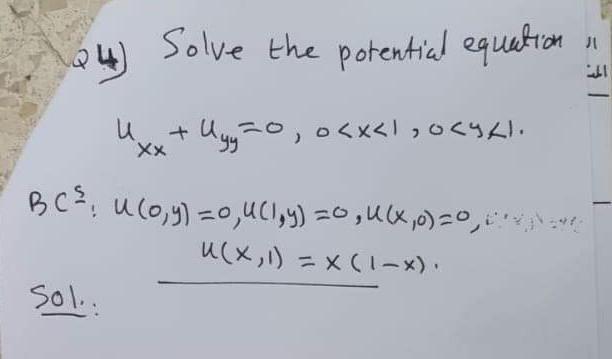 Q4) Solve the potential equation
u_xx + u_yy = 0, 0<x<1, 0<y<1.
BCs: u(0,y) = 0, u(1,y) = 0, u(x,0) = 0,
u(x,1) = x(1-x).
Sol.: